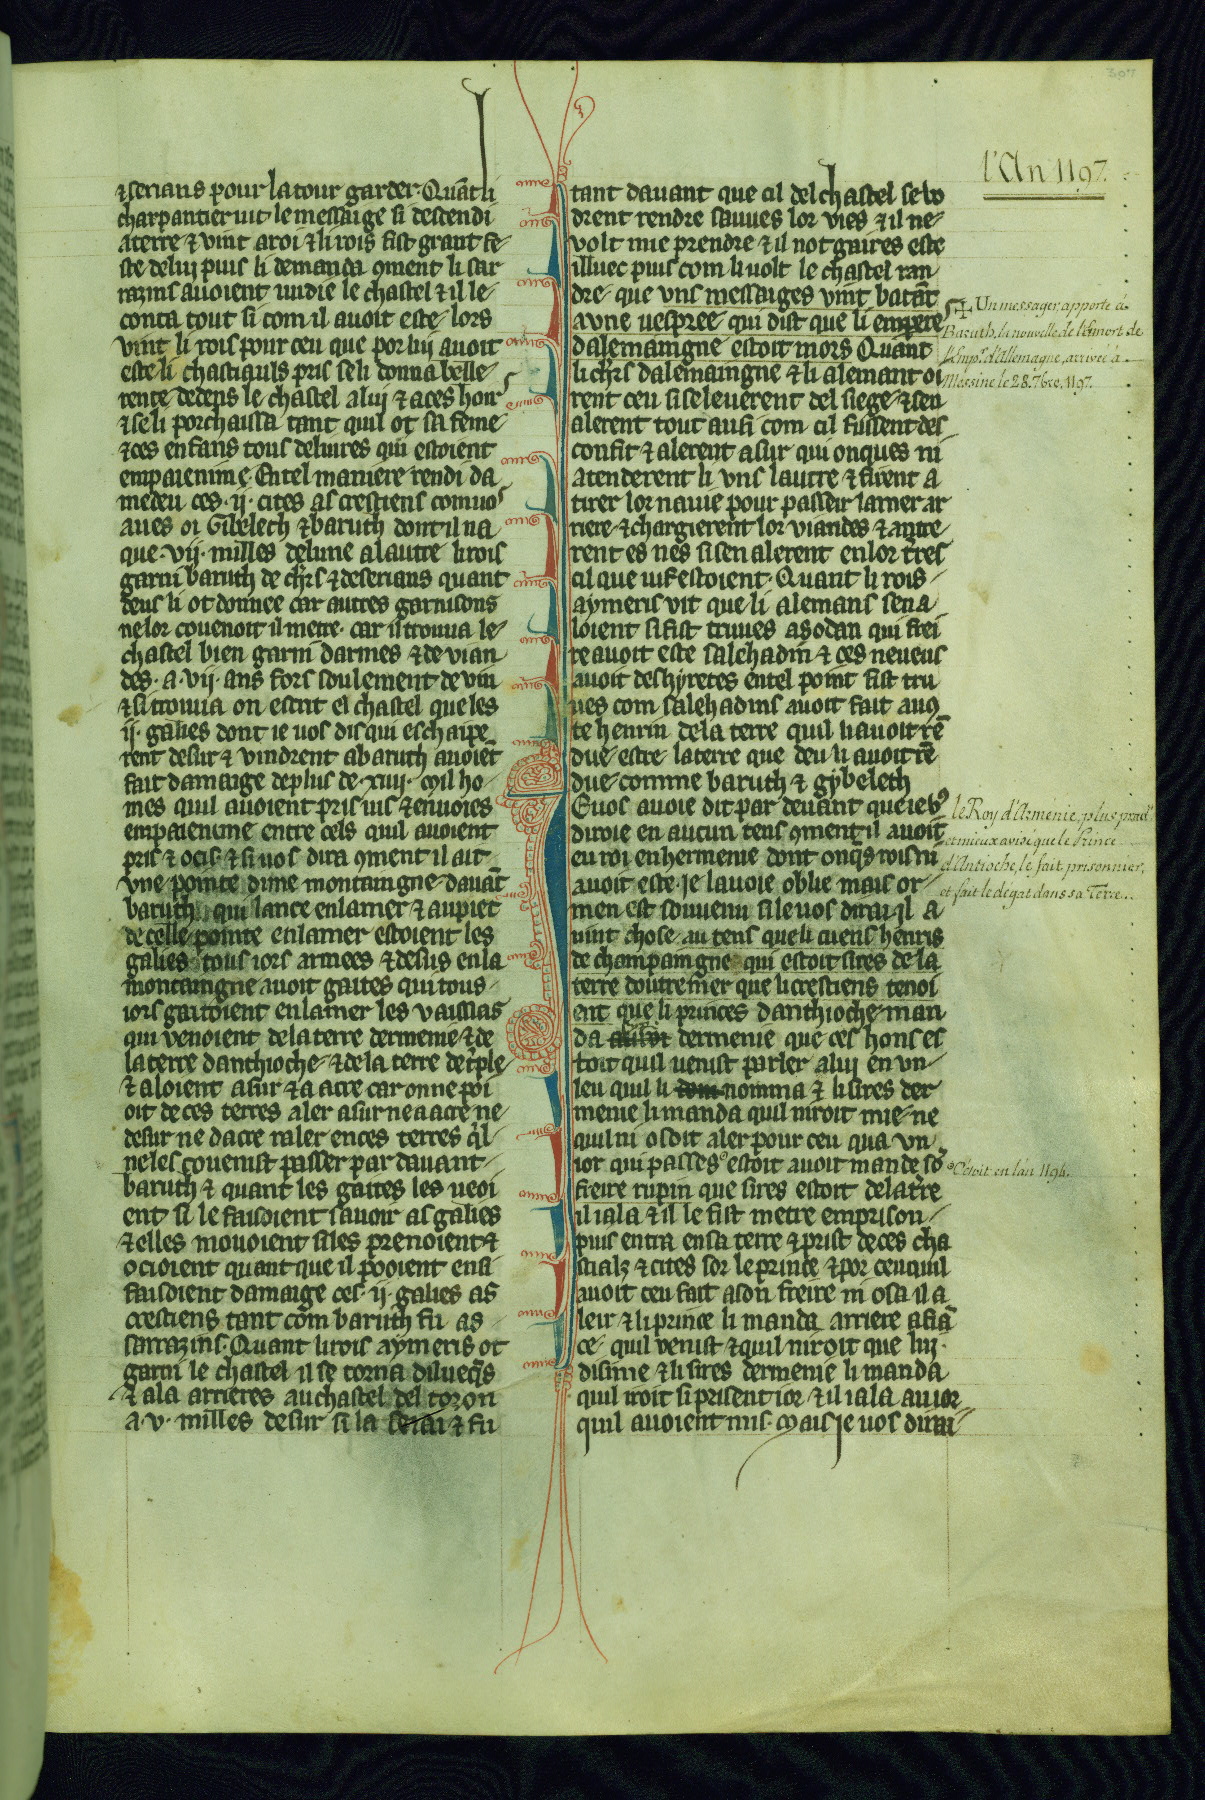 ⁊ serians pour la tour garder. Quāt li
charpantier uit le messaige si descendi
a terre ⁊ vint a roi ⁊ li rois fist grant fe
ste de lui puis li demanda ꝯment li sar
razins auoient uudie le chastel ⁊ il le
conta tout si com il auoit este lors
vint li rois pour ceu que por luj auoit
este li chastiauls pris se li donna belle
rente dedens le chastel a luj ⁊ a ces hon̄
⁊ se li porchaissa tant quil ot sa feme
⁊ ces enfans tous deliures qui estoient
em paienime. En tel maniere rendi da
medeu ces .ij. cites as crestiens com uos
aues oi Gibelech ⁊ baruth dont il na
que .vij. milles de lune a lautre li rois
garni baruth de chr̄s ⁊ de serians quant
deus li ot donnee car autres garnisons
ne lor couenoit il metre. car il trouua le
chastel bien garni darmes ⁊ de vian
des. a .vij. ans fors soulement de vin
⁊ si trouua on escrit el chastel que les
ij. galies dont ie uos dis qui eschaipe
rent desur ⁊ vindrent a baruth auoiēt
fait damaige de plus de .xiiij. mil ho
mes quil auoient pris uis ⁊ enuoies
em paienime entre cels quil auoient
pris ⁊ ocis. ⁊ si uos dira ꝯment il ait
vne pointe dime montaingne dauāt
baruth qui lance en la mer ⁊ au piet
de celle pointe en la mer estoient les
galies tous iors armees ⁊ desus en la
montaingne auoit gaites qui tous
iors gaitoient en la mer les vaissias
qui venoient de la terre dermenie ⁊ de
la terre danthioche ⁊ de la terre de t̄ple
⁊ aloient a sur ⁊ a acre car on ne poi
oit de ces terres aler a sur ne a acre ne
desur ne dacre raler en ces terres q̄l
ne les couenist passer par dauant
baruth ⁊ quant les gaites les ueoi
ent si le faisoient sauoir as galies
⁊ elles mouoient si les prenoient ⁊
ocioient quant que il pooient ensi
faisoient damaige ces .ij. galies as
crestiens tant com baruth fu as
sarrazins. Quant li rois aymeris ot
garni le chastel il se torna dilueq̄s
⁊ ala arrieres au chastel del toron
a .v. milles desur si la ⁊ fu
tant dauant que cil del chastel se vo
drent rendre sauues lor vies ⁊ il ne
volt mie prendre ⁊ il not gaires este
illuec puis com li volt le chastel ran
dre que vns messaiges vint batāt
a vne uespree qui dist que li empere
dalemaingne estoit mors Quant
li chr̄s dalemaingne ⁊ li alemant oi
rent ceu si se leuerent del siege ⁊ sen
alerent tout ausi com cil fussent des
confit ⁊ alerent a sur qui onques ni
atenderent li vns lautre ⁊ firent a
tirer lor nauie pour passeir la mer ar
riere ⁊ chargierent lor viandes ⁊ antre
rent es nes si sen alerent en lor t̄res
cil que uif estoient. Quant li rois
aymeris vit que li alemans sen a
loient si fist truues a sodan qui frei
re auoit este salehadin ⁊ ces neueus
auoit deshyretes en tel point fist tru
ues com salehadins auoit fait au ꝯ
te henrin de la terre qui li auoit rē
due estre la terre que deu li auoit rē
due comme baruth ⁊ gybelech
E uos auoie dit par deuant que ie uꝰ
diroie en aucun tens ꝯment il auoit
eu roi en hermenie dont onq̄s rois ni
auoit este. Je lauoie oblie mais or
men est souuenu si le uos dirai. Il a
uint chose au tens que li cuens henris
de champaingne qui estoit sires de la
terre doutremer que li crestiens tenoi
ent que li princes danthioche man
da dermenie que ces hons es
toit quil uenist parler a luj en vn
leu quil li nomma ⁊ li sires der
menie li manda quil niroit mie ne
quil ni osoit aler pour ceu qua vn
ior qui passes estoit auoit mande sō
freire rupin que sires estoit de la t̄re
il i ala ⁊ il le fist metre em prison
puis entra en sa terre ⁊ prist de ces cha
stialz ⁊ cites sor le prince ⁊ por ceu quil
auoit ceu fait a son freire ni osa il a
leir ⁊ li prince li manda arriere a fiā
ce quil venist ⁊ quil niroit que luj
disime ⁊ li sires dermenie li manda
quil iroit si prisent ior ⁊ il i ala au ior
quil auoient mis. Mais je uos dirai
l'An 1197.
Un messager apporte à
Baruth, la nouvelle de la mort de
l'Emp.r d'Allemagne, arrivée à
Messine le 28. 7bre. 1197.
le Roy d'Arménie, plus
et mieux avisé que le Prince
d'Antioche, le fait prisonnier,
et fait le dégat dans sa Terre..
C'étoit en l'an 1194.